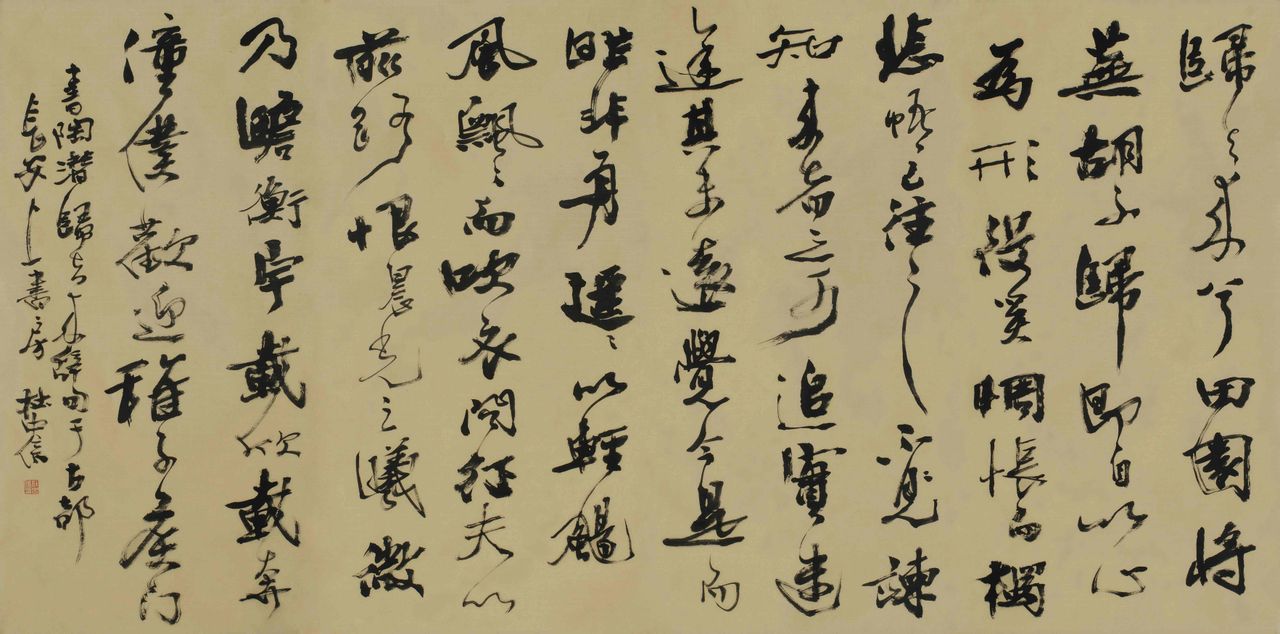 歸去來兮田園將
蕪胡不歸既自以心
為形役奚惆悵而獨
悲悟已往之不諫
知來者之可追實迷
途其未遠覺今是而
昨非舟遥々以輕颺
風飄々而吹衣問征夫以
前路恨晨光之曦微
乃瞻衡宇載欣載奔
僮僕歡迎稚子候門
書陶潛歸去來辭句于古都
長安卜一書房 杜中信